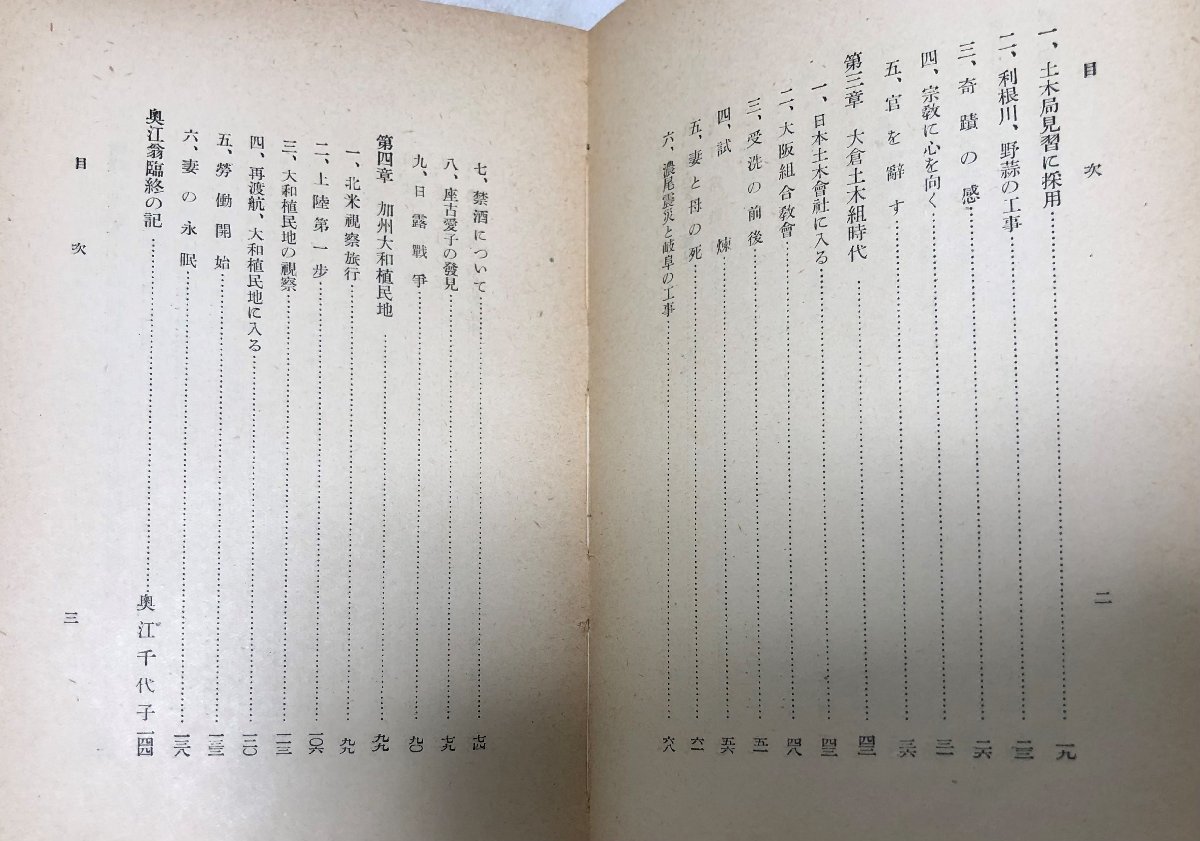 目次
二
一、土木局見習に採用…一九
二、利根川、野蒜の工事…二三
三、奇蹟の感…二六
四、宗教に心を向く…三一
五、官を辭す…三六
第三章 大倉土木組時代…四三
一、日本土木會社に入る…四三
二、大阪組合教會…四八
三、受洗の前後…五一
四、試煉…五六
五、妻と母の死…六一
六、濃尾震災と岐阜の工事…六八
七、禁酒について…七四
八、座古愛子の發見…七九
九、日露戰爭…九〇
第四章 加州大和植民地…九九
一、北米視察旅行…九九
二、上陸第一步…一〇六
三、大和植民地の視察…一一三
四、再渡航、大和植民地に入る…一二〇
五、勞働開始…
六、妻の永眠…一三八
奧江翁臨終の記…奧江千代子 一四四
目次
三